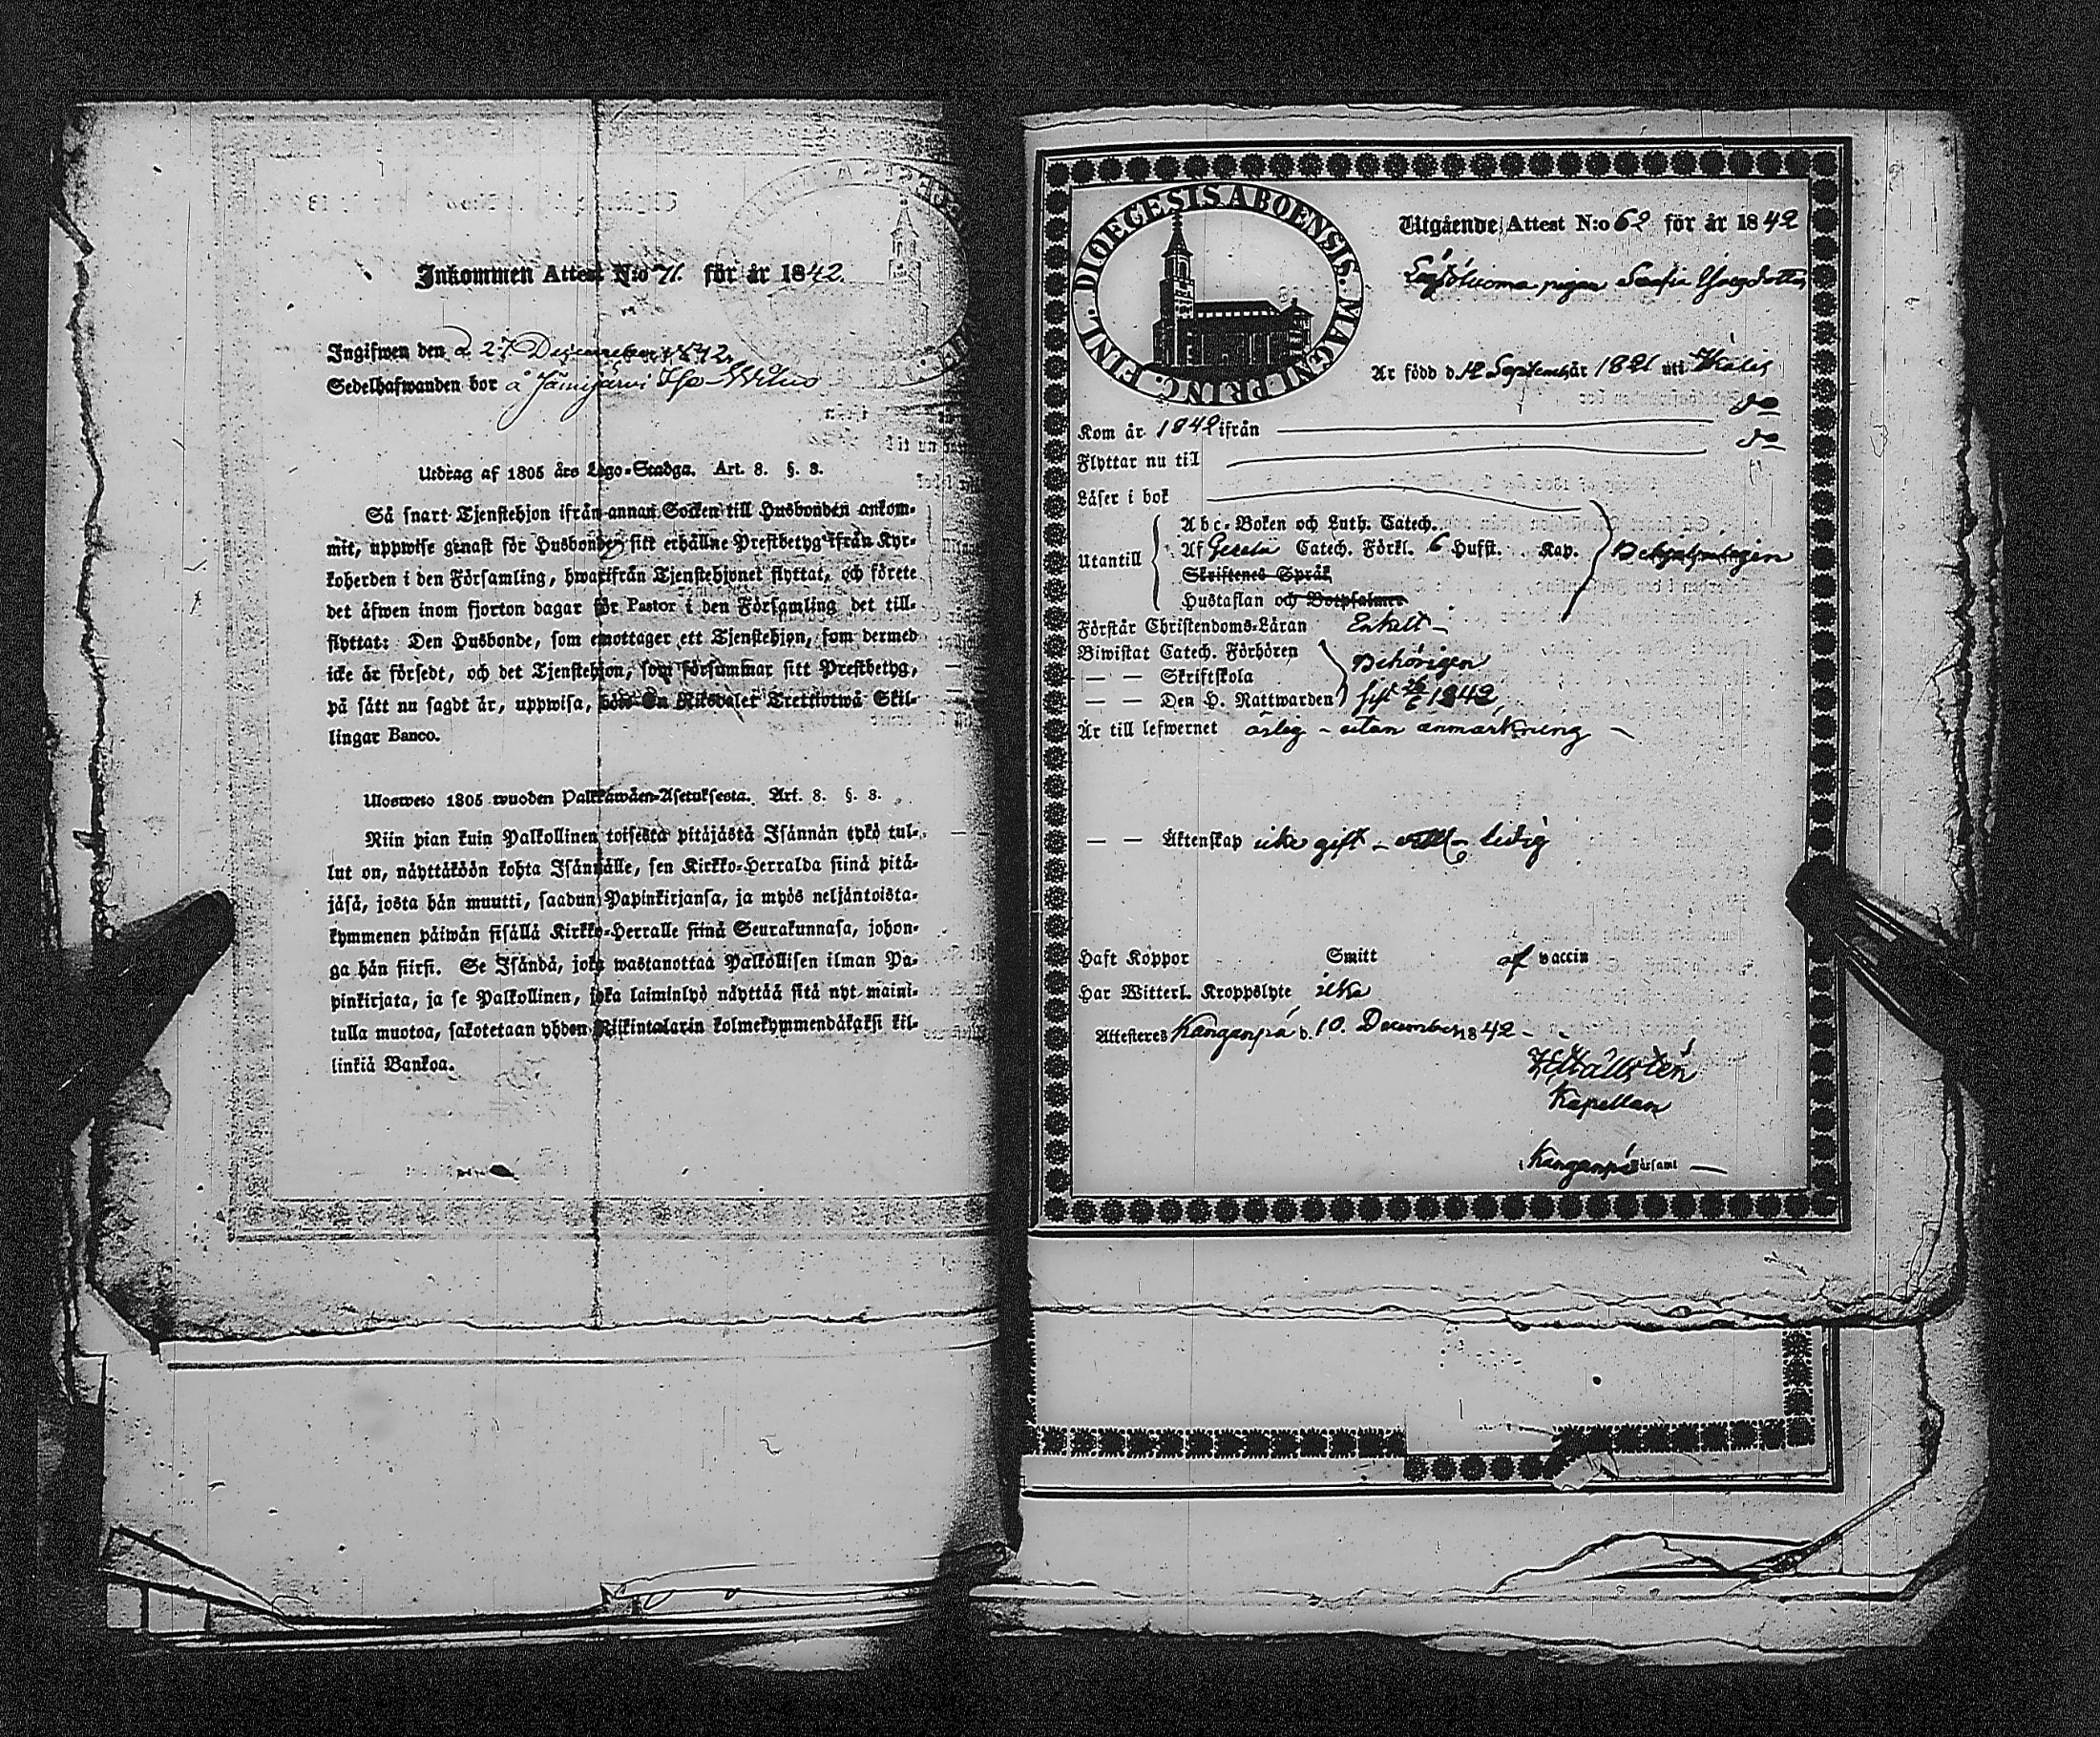 Inkommen Attest N:o 71. för år 1842.
Ingifwen den d. 27 December 1842.
Sedelhafwanden bor å Jämijärvi
Utdrag af 1805 års Lego-Stadga. Art. 8. §. 3.
Så snart Tjenstehjon ifrån annan Socken till Husbonden ankom-
mit, uppwise genast för Husbonden sitt erhållne Prestbetyg ifrån Kyr-
koherden i den Församling, hwarifrån Tjenstehjonet flyttat, och förete
det äfwen inom fjorton dagar för Pastor i den Församling det till-
flyttat: Den Husbonde, som emottager ett Tjenstehjon, som dermed
icke är försedt, och det Tjenstehjon, som försummar sitt Prestbetyg,
på sätt nu sagdt är, uppwisa, böte En Riksdaler Trettiotwå Skil-
lingar Banco.
Ulosweto 1805 wuoden Palkkawäen-Asetuksesta. Art. 8. §. 3.
Niin pian kuin Palkollinen toisesta pitäjästä Isännän tykö tul-
lut on, näyttäköön kohta Isännälle, sen Kirkko-Herralda siinä pitä-
jäsä, josta hän muutti, saadun Papinkirjansa, ja myös neljäntoista-
kymmenen päiwän sisällä Kirkko-Herralle siinä Seurakunnasa, johon-
ga hän siirsi. Se Isändä, joka wastanottaa Palkollisen ilman Pa-
pinkirjata, ja se Palkollinen, joka laiminlyö näyttää sitä nyt maini-
tulla muotoa, sakotetaan yhden Riikintalarin kolmekymmendäkaksi kil-
linkiä Bankoa.
DIOEGESIS ABOENSIS. MAGNI PRINC. FINL.
Utgående Attest N:o 62 för år 1842
pigan Sofia
Är född d. 12 September år 1821 uti Ikalis
Kom år 1842 ifrån do
Flyttar nu til do
Läser i bok
Abc-Boken och Luth. Catech.
Utantill Af Gezelii Catech. Förkl. 6 Hufst. Kap.
Skriftenes Språk
Hustaflan och Botpsalmer
Förstår Christendoms-Läran Enkelt
Biwistat Catech. Förhören Behörigen
— — Skriftskola
— — Den H. Nattwarden sist 1842
Är till lefwernet ärlig - utan anmärkning
— — Äktenskap icke gift - ledig
Haft Koppor Smitt af vaccin
Har Witterl. Kroppslyte icke
Attesteras Kanganpä d. 10. December 1842
Kapellan
i Kanganpä Församl